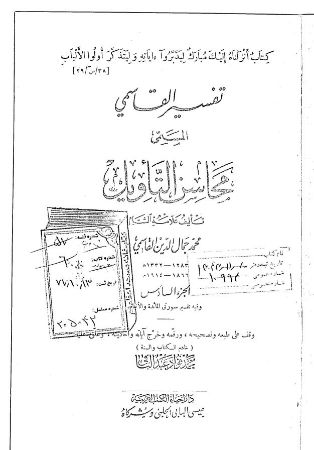 كِتَابٌ أَنزَلْنَاهُ إِلَيْكَ مُبَارَكٌ لِيَدَّبَّرُوا ءَايَاتِهِ وَلِيَتَذَكَّرَ أُولُوا الأَلْبَابِ
[٣٨/ص/٢٩]
تفسير القاسمي
المسمى
محاسن التأويل
تأليف علامة الشام
محمد جمال الدين القاسمي
١٢٨٣ ١٣٣٢
١٨٦٦ ١٩١٤
الجزء السادس
وفيه تفسير سورتى المائدة والأنعام
وقف على طبعه وتصحيحه ، ورقمه وخرّج آياته وأحاديثه ، وعلق عليه
( خادم الكتاب والسنة )
محمد فؤاد عبد الباقي
دار إحياء الكتب العربية
عيسى البابى الحلبى وشركاه